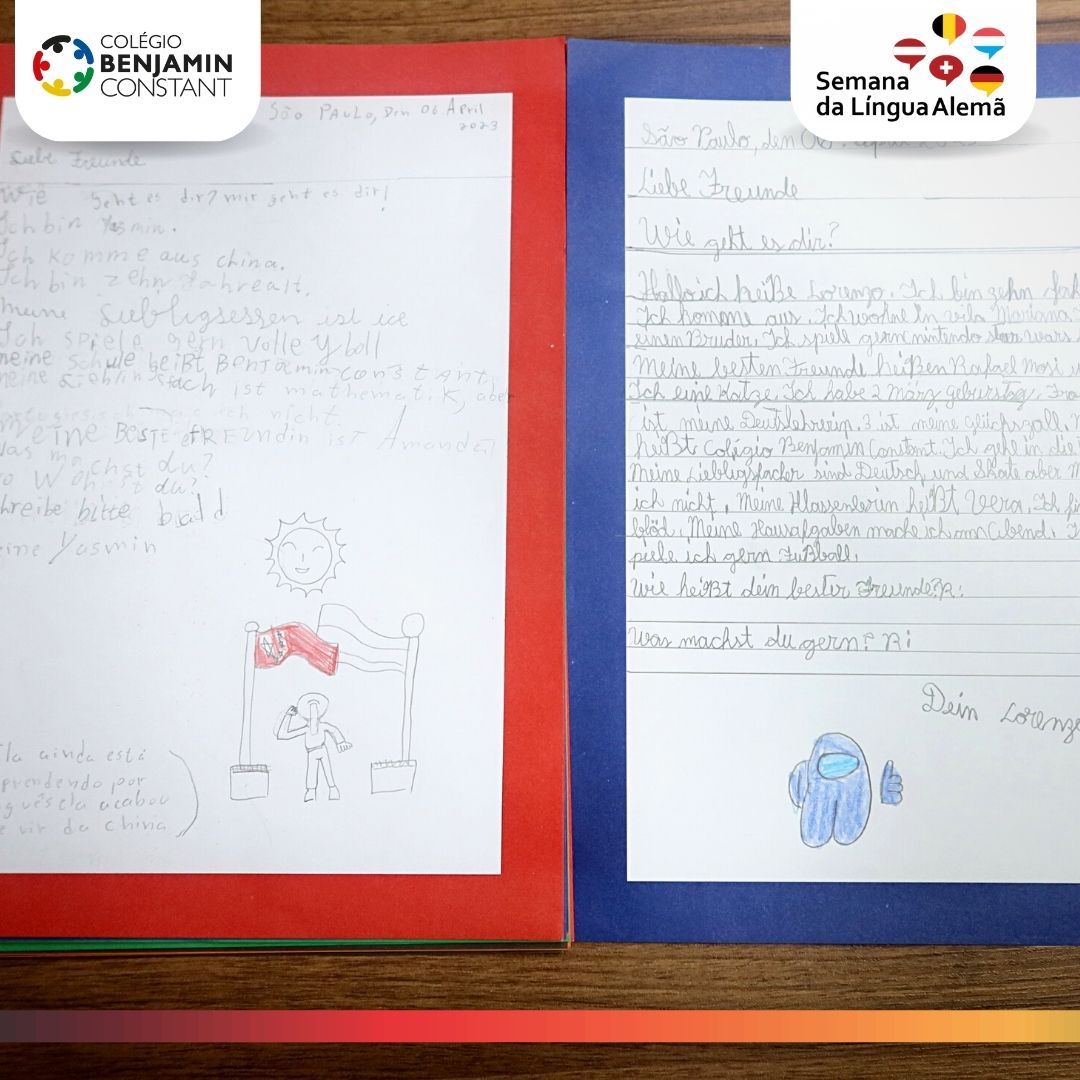 COLÉGIO
BENJAMIN
CONSTANT
Semana
da Língua Alemã
São Paulo, Den 06 April
2023
Liebe Freunde
Wie geht es dir? mir geht es dir!
Ich bin Yasmin.
Ich komme aus china.
Ich bin zehn Jahrealt.
meine Liebligsessen ist ice
Ich spiele gern Volleyboll
meine Schule heißt BenJamin CONSTANT,
meine Lieblinsfach ist mathematik, aber
ich nicht.
MEINE BESTE FREUNDIN IST Amanda!
Was machst du?
Wo Wohnst du?
hreibe bitte bald
eine Yasmin
la ainda está
prendendo por
guês ela acabou
e vir da china
São Paulo, den 06. April 2023
Liebe Freunde
Wie geht es dir?
Hallo ich heiße Lorenzo. Ich bin zehn Jah
Ich komme aus. Ich wohne in vila Mariana
einen Bruder. Ich spiele gern nintendo star wars
Meine besten Freunde heißen Rafael Mori u
Ich eine Katze. Ich habe 2 März geburstag. Fra
ist meine Deutslehrerin. 3 ist meine glückszall. M
heißt Colégio Benjamin Constant. Ich gehe in die
Meine Liebligsfächer sind Deutsch und Skate aber M
ich nicht. Meine Klassenlerin heißt Vera. Ich fi
blöd. Meine Hausafgaben mache ich am Abend. I
piele ich gern Fußball.
Wie heißt dein bester Freunde? R:
Was machst du gern? R:
Dein Lorenzo